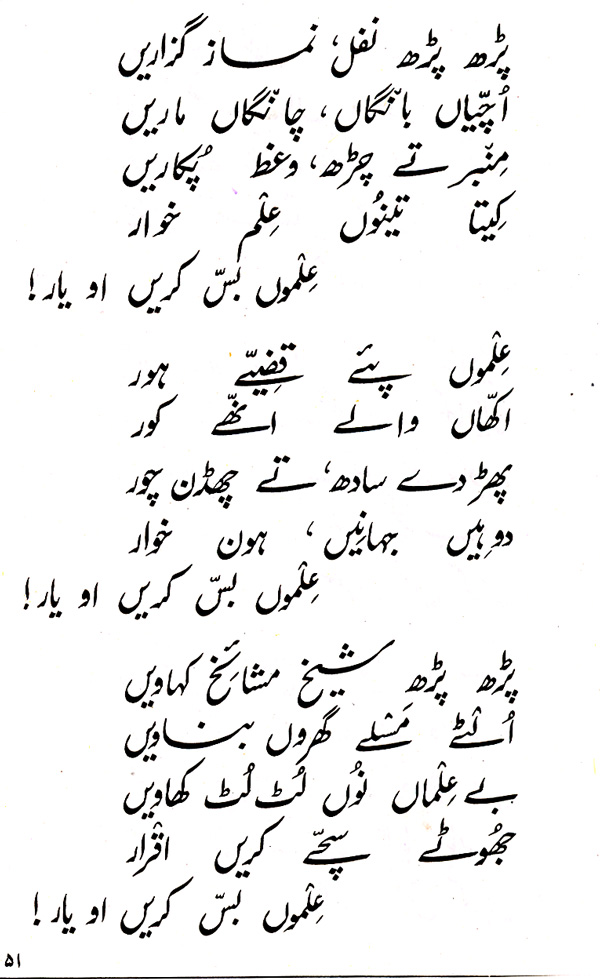 پڑھ پڑھ نفل، نماز گزاریں
اُچّیاں بانگاں، چانگاں ماریں
مِنبر تے چڑھ، وعظ پُکاریں
کِیتا تینوُں عِلْم خوار
عِلْموں بسّ کریں او یار!
عِلْموں پئے قضِیّے ہور
اکھّاں والے انھّے کور
پھڑدے سادھ، تے چھڈن چور
دوہِیں جہانِیں، ہون خوار
عِلْموں بسّ کریں او یار!
پڑھ پڑھ شیخ مشائخ کہاویں
اُلٹے مَسٔلے گھروں بناویں
بے عِلْماں نوُں لُٹ لُٹ کھاویں
جھُوٹے سچّے کریں اقْرار
عِلْموں بسّ کریں او یار!
۵۱